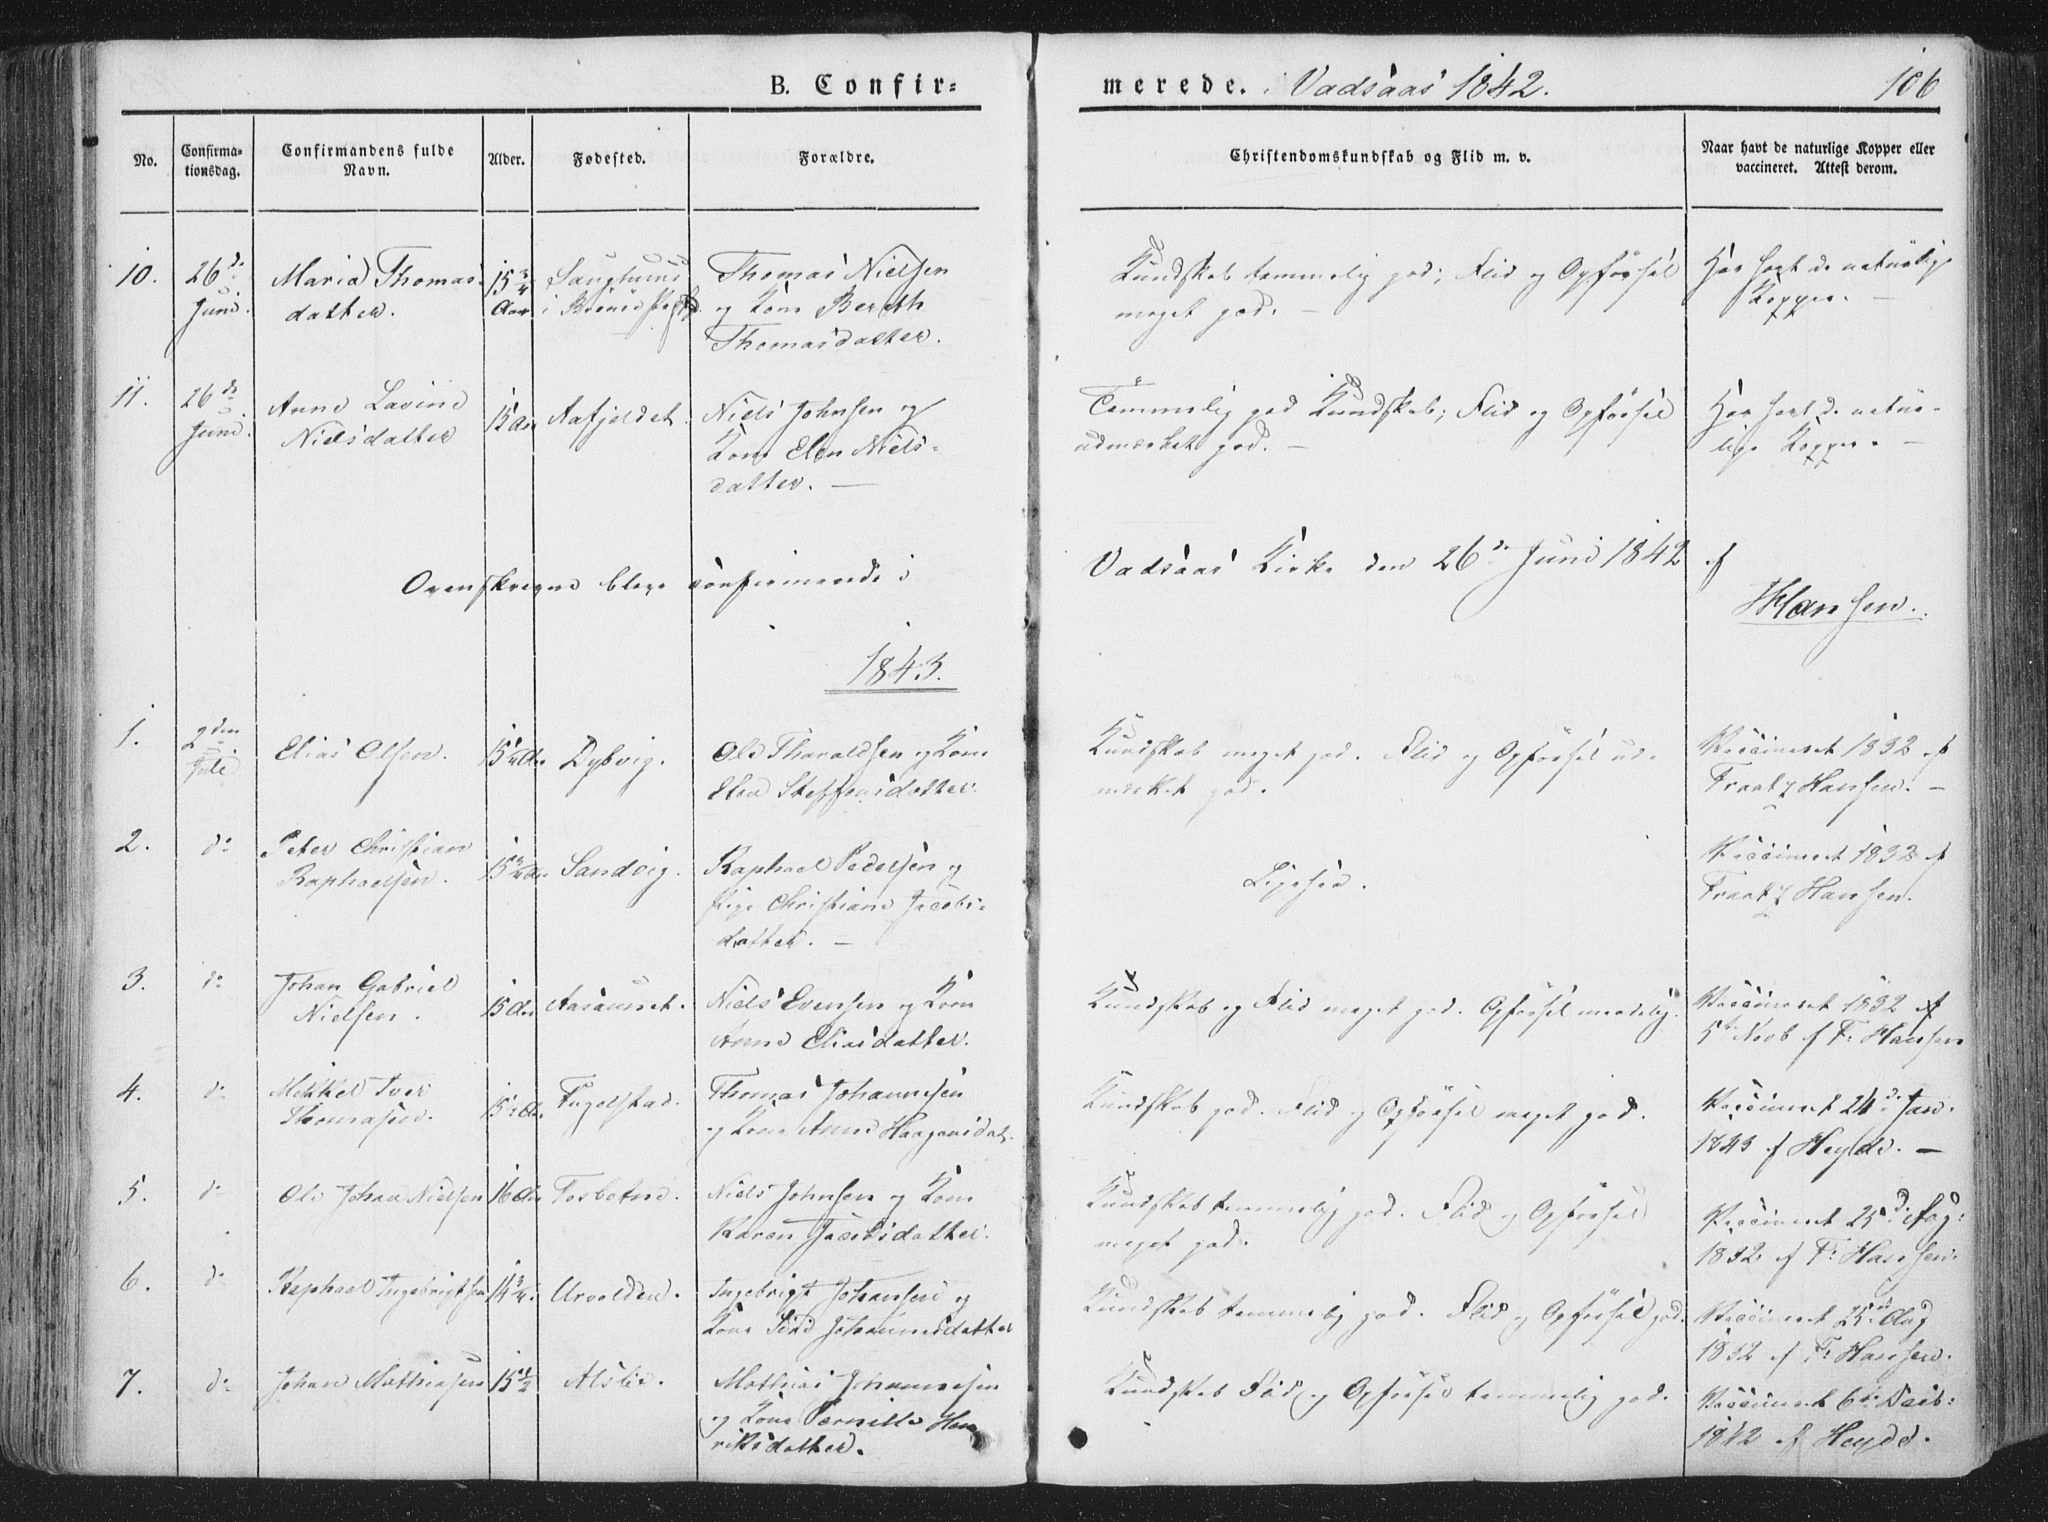 B. Confir=
merede. i Vadsaas 1842.
106
No.
Confirma-
tionsdag.
Confirmandens fulde
Navn.
Alder.
Fødested.
Forældre.
Christendomskundskab og Flid m. v.
Naar havt de naturlige Kopper eller
vaccineret. Attest derom.
10. 26de Juni. Maria Thomas- 15 3/4 Thomas Nielsen Kundskab temmelig god; Flid og Opførsel Har havt de naturlige
datter. Aar i og Kone Bereth meget god. Kopper.
Thomasdatter.
11. 26de Juni. Anne Lavine 15 Aar Aafjeldet. Niels Johnsen og Temmelig god Kundskab; Flid og Opførsel Har havt de natur-
Nielsdatter Kone Elen Niels- udmærket god. lige Kopper.
datter.
Ovenskrevne bleve confirmerede i Vadsaas Kirke den 26de Juni 1842 af
Hansen.
1843.
1. 2den Juli Elias Olsen. Dybvig. Ole Tharaldsen og Kone Kundskab meget god. Flid og Opførsel ud- Vaccineret 1832 af
Elen Steffensdatter. mærket god. Frantz Hansen.
2. do Peter Christian Sandvig. Raphael Pedersen og Ligesaa. Vaccineret 1832 af
Raphaelsen. Pige Christiane Jacobs- Frantz Hansen.
datter.
3. do Johan Gabriel 15 Aar Aasaunet. Niels Evensen og Kone Kundskab og Flid meget god. Opførsel maadelig. Vaccineret 1832
Nielsen. Anne Eliasdatter. 5te Novb af F. Hansen
4. do Mikkel Iver Fugelstad. Thomas Johannesen Kundskab god. Flid og Opførsel meget god. Vaccineret 24de Jan.
Thomasen. og Kone Anne Haagensdat. 1843 af Heyde.
5. do Ole Johan Nielsen 16 Aar Tosbotne. Niels Johnsen og Kone Kundskab temmelig god. Flid og Opførsel Vaccineret 25de Aug:
Karen Jacobsdatter. meget god. 1832 af F. Hansen.
6. do Raphael Ingebrigtsen 14 3/4. Urvolden. Ingebrigt Johansen og Kundskab temmelig god. Flid og Opførsel god. Vaccineret 25de Aug
Kone Johannesdatter 1832 af F. Hansen.
7. do Johan Mathiasen 15 1/2 Alslie. Mathias Johannesen Kundskab Flid og Opførsel temmelig god. Vaccineret 6te
og Kone Pernille Hen 1842 af Heyde.
riksdatter.